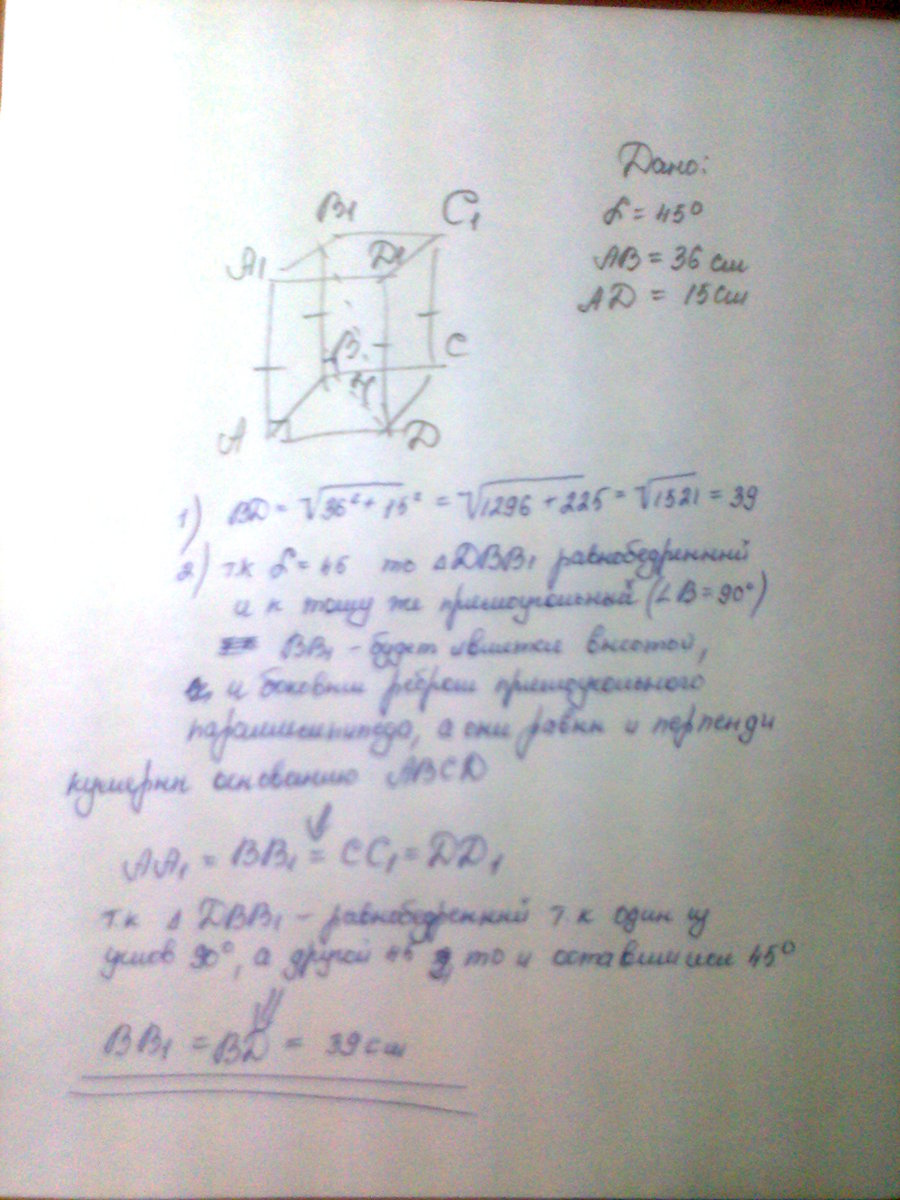 Дано:
L = 45°
AB = 36 см
AD = 15 см
B1
C1
A1
D1
B
C
A
D
1) BD = √36² + 15² = √1296 + 225 = √1521 = 39
2) т.к L = 45 то △DBB1 равнобедренный
и к тому же прямоугольный (∠B = 90°)
BB1 - будет является высотой,
и боковым ребром прямоукольного
а они равны и перпенди
кулярны основанию ABCD
AA1 = BB1 = CC1 = DD1
т.к △ DBB1 - равнобедренный т.к один из
углов 90°, а другой 45 то и 45°
BB1 = BD = 39 см